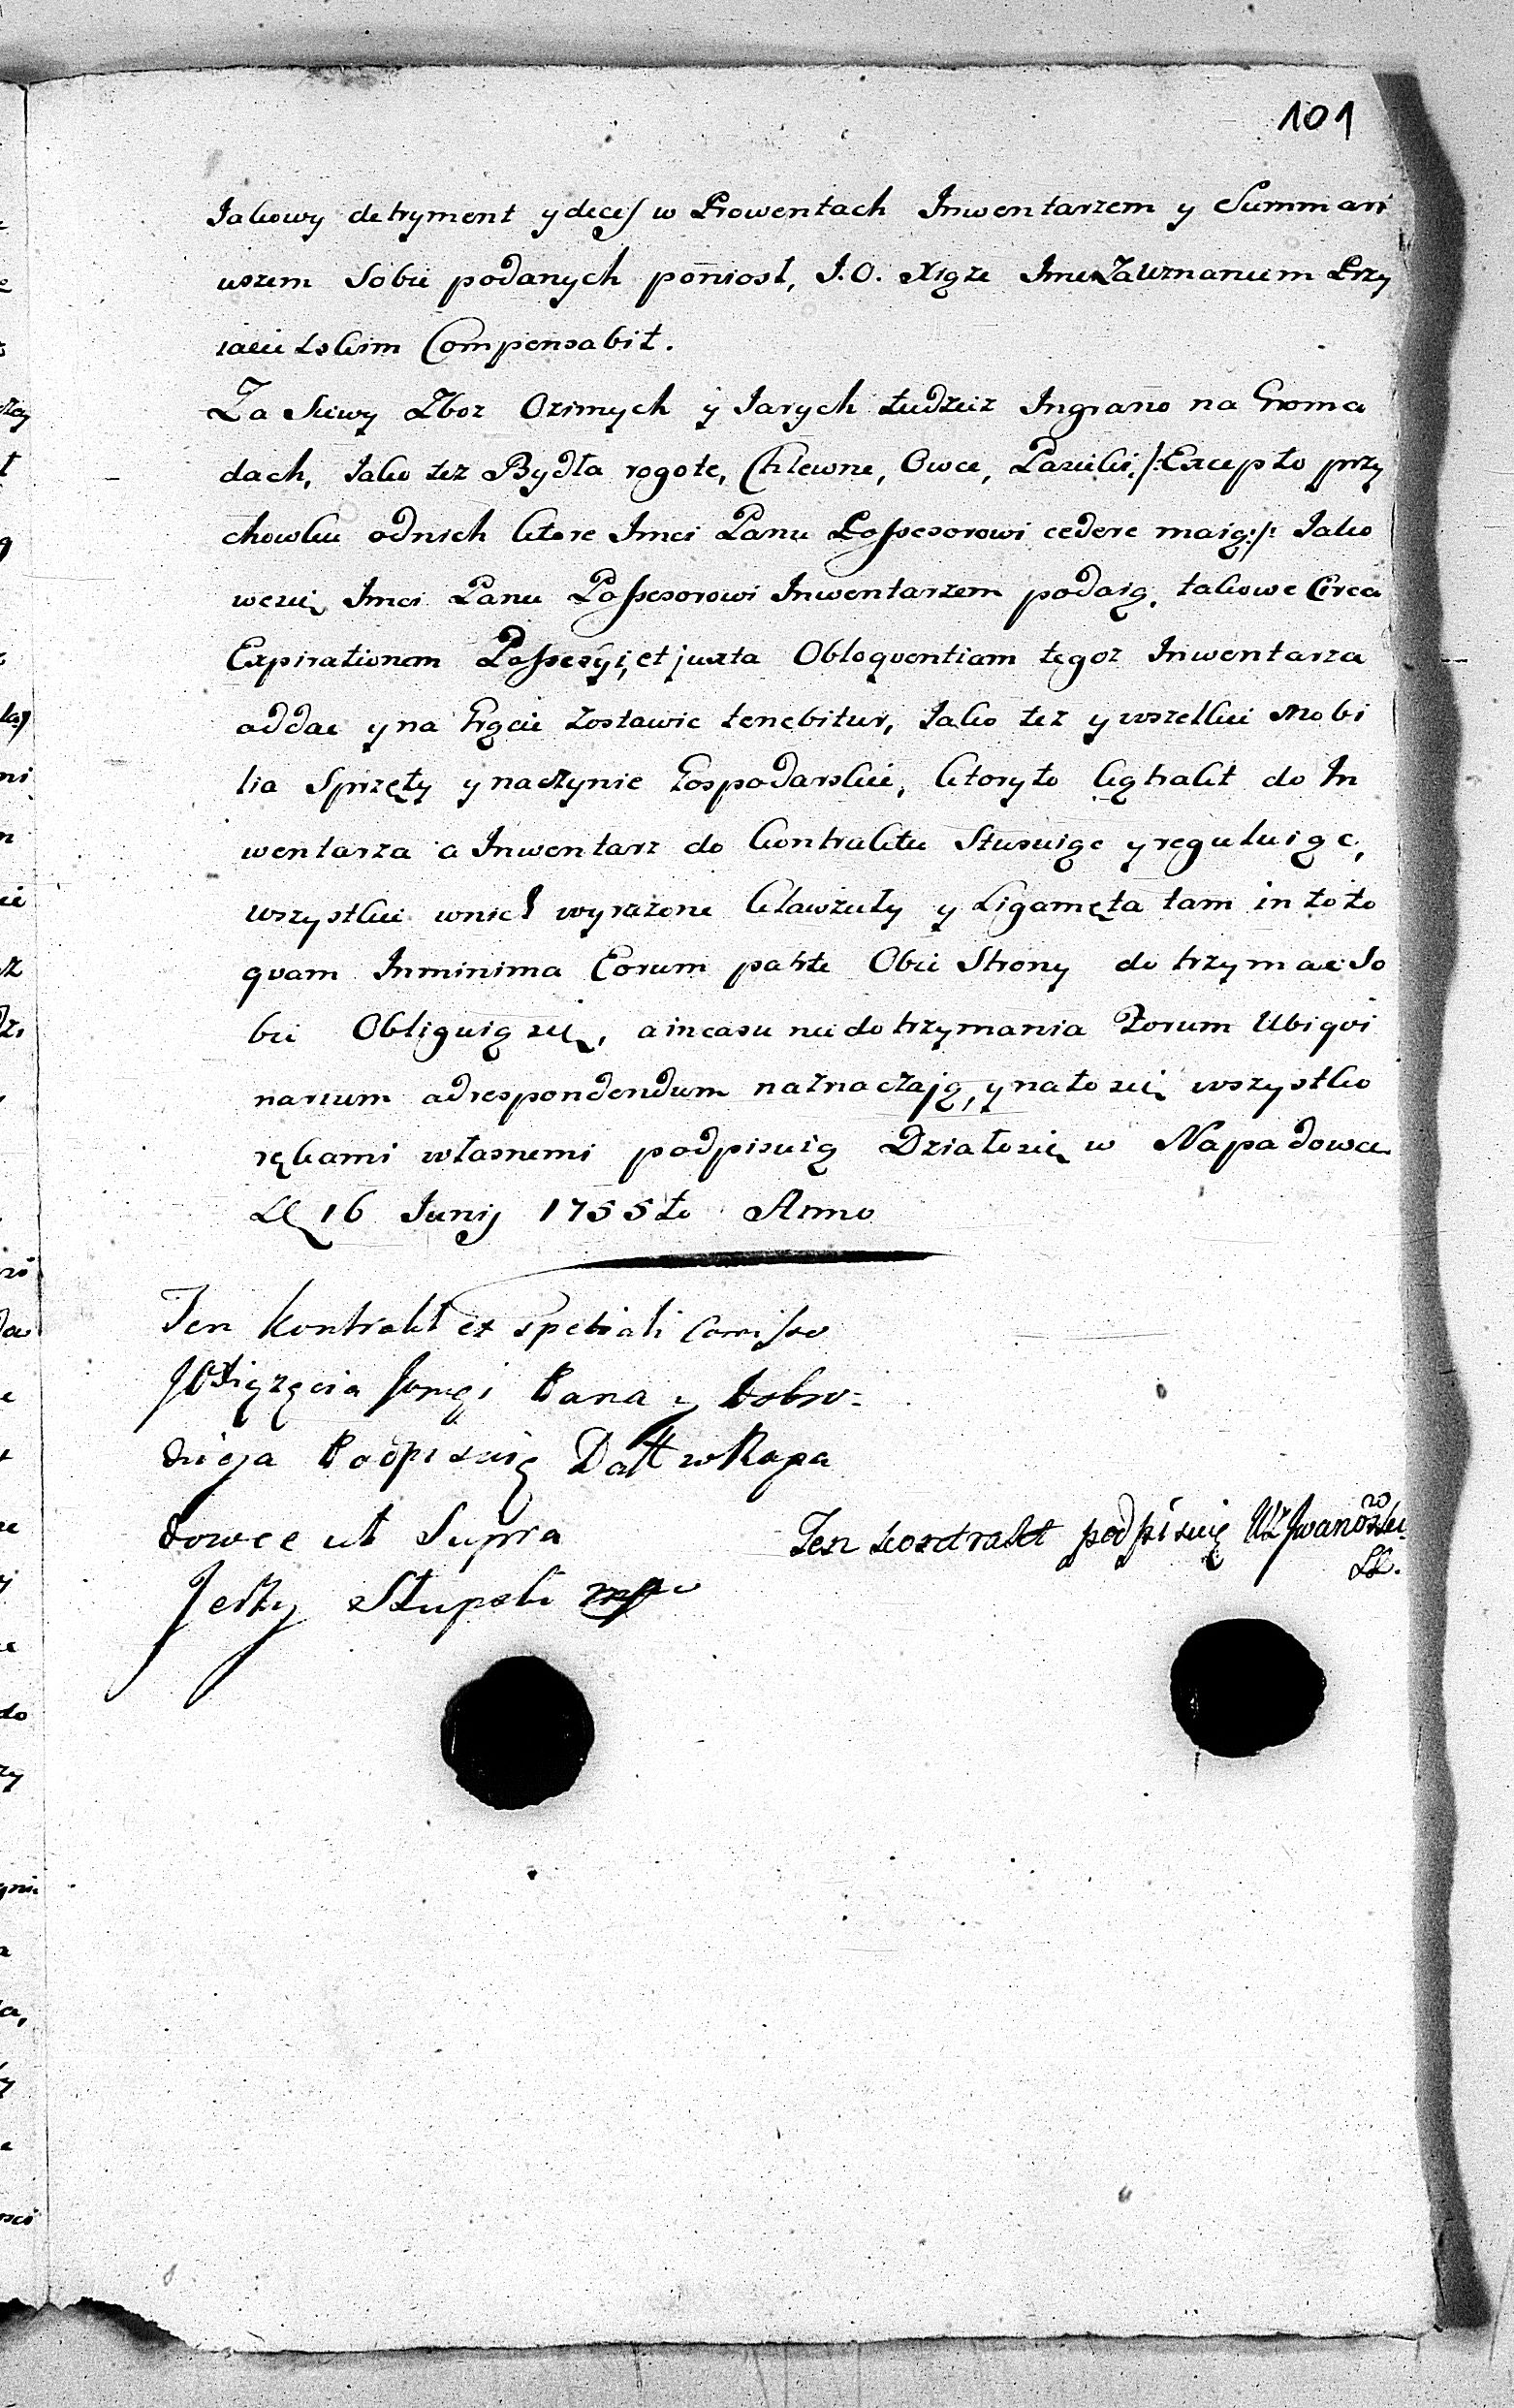 101
Jakowy detryment y deces w Prowentach Inwentarzem y Summari
uszem Sobie podanych poniosł, J.O. Xiąże Imć Za Uznaniem Przy
iacielskim Compensabit.
Za Siewy Zboz Ozimych y Jarych tudziez Ingrano na Groma
dach, Jako tez Bydła rogote, Chlewne, Owce, Pasieki /:Excepto przy
chowku odnich ktore Imci Panu Possesorowi cedere maią:/: Jako
wezcię Imci Panu Possesorowi Inwentarzem podaią, takowe Circa
Expirationem Possesyi, et juxta Obloquentiam tegoz Inwentarza
addac y na Grącie zostawic tenebitur, Jako tez y wszelkie Mobi
lia Sprzęty y naczynie Gospodarskie, ktoryto kątrakt do In
wentarza a Inwentarz do kontraktu Stusuiąc y reguluiąc,
wszystkie wnich wyrazone klawzuły y Ligamęta tam in toto
quam Inminima Eorum patrte Obie Strony dotrzymac So
bie Obliguią się, a incasu nie dotrzymania Forum Ubiqvi
narium adrespondendum naznaczają, y nato się wszystko
rękami własnemi podpisuią Działosię w Napadowce
Dę 16 Junij 1755to Anno
Ten kontrakt ex spetiali Comisso
JOXiązęcia Jmgi Pana y Dobro=
dzieja Podpisuię Datt w Napa
dowce ut Supra
Jerzy Słupski mp
Ten kontrakt podpisuię UZ Jwanowski